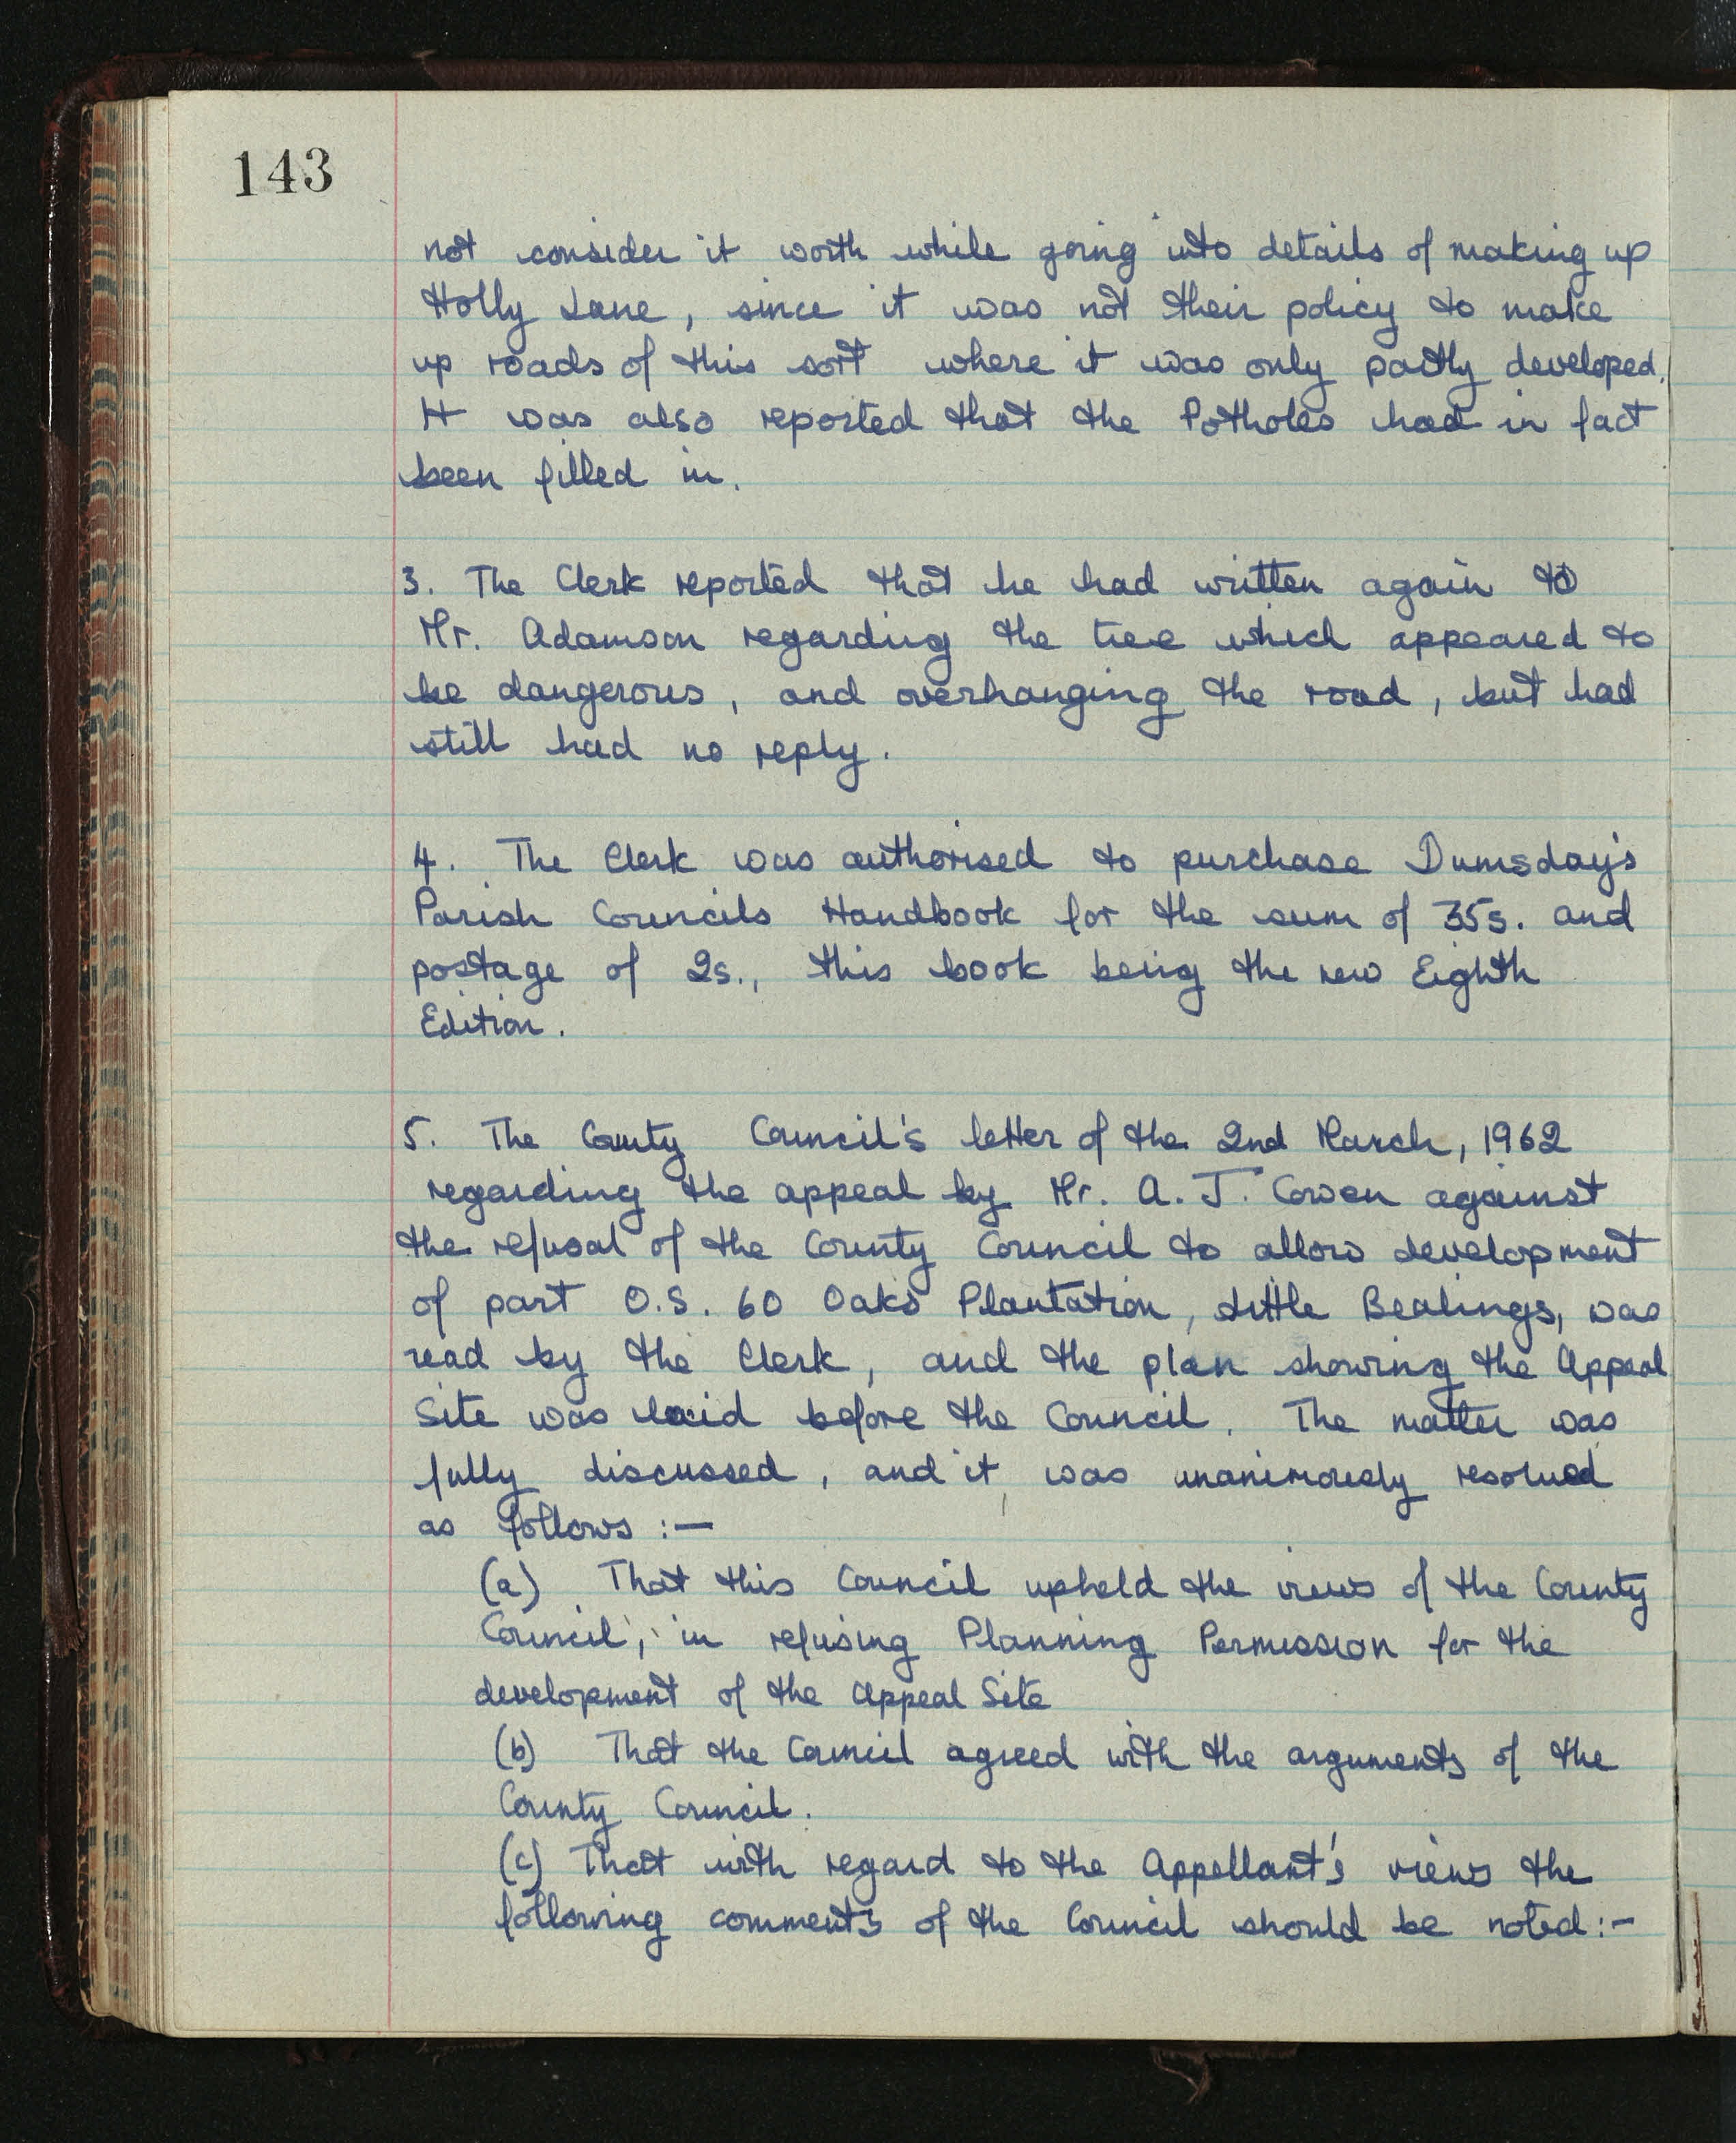 143
not consider it worth while going into details of making up
Holly Lane, since it was not their policy to make
up roads of this sort where it was only partly developed.
It was also reported that the Potholes had in fact
been filled in.
3. The Clerk reported that he had written again to
Mr. Adamson regarding the tree which appeared to
be dangerous, and overhanging the road, but had
still had no reply.
4. The Clerk was authorised to purchase Dumsday's
Parish Councils Handbook for the sum of 35s. and
postage of 2s., this book being the new Eighth
Edition.
5. The County Council's letter of the 2nd March, 1962
regarding the appeal by Mr. A. J. Cowen against
the refusal of the County Council to allow development
of part O.S. 60 Oaks Plantation, Little Bealings, was
read by the Clerk, and the plan showing the Appeal
Site was laid before the Council. The matter was
fully discussed, and it was unanimously resolved
as follows :—
(a) That this Council upheld the views of the County
Council, in refusing Planning Permission for the
development of the Appeal Site
(b) That the Council agreed with the arguments of the
County Council.
(c) That with regard to the Appellant's views the
following comments of the Council should be noted:-